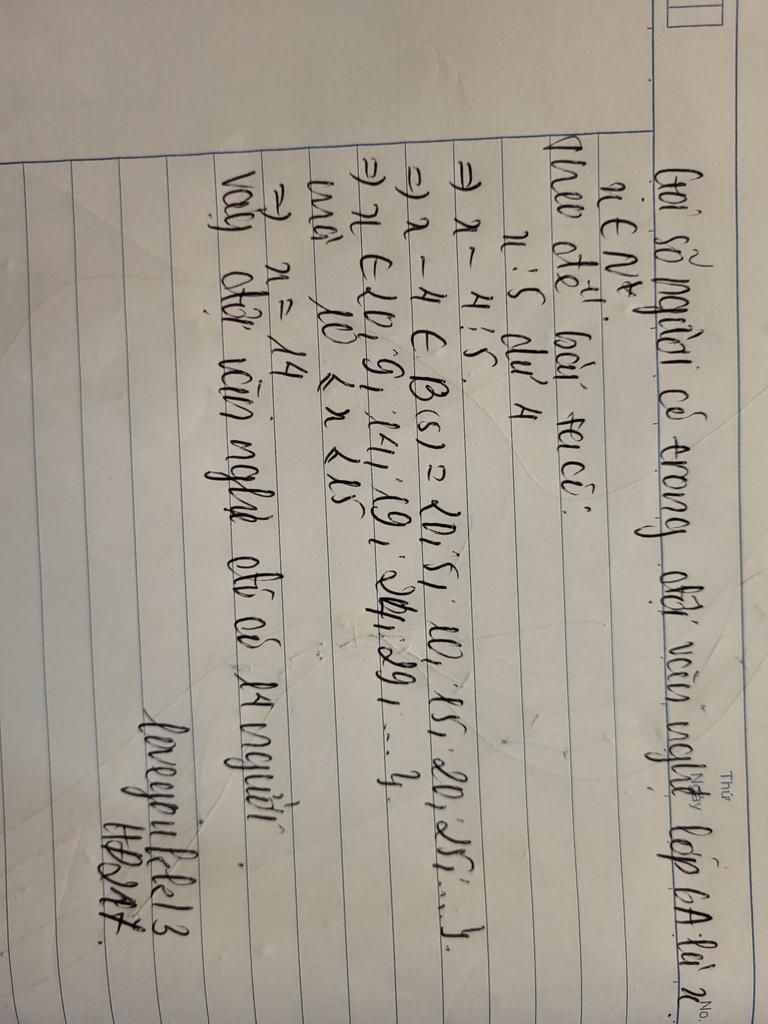 Thứ
Ngày
No.
Gọi số người có trong đội văn nghệ lớp 6A là x
x ∈ N*.
Theo đề bài ta có:
x : 5 dư 4
=> x - 4 ⋮ 5.
=> x - 4 ∈ B(5) = {0; 5; 10; 15; 20; 25; ...}.
=> x ∈ {0; 9; 14; 19; 24; 29; ...}.
mà 10 < x < 15
=> x = 14
Vậy đội văn nghệ đó có 14 người.